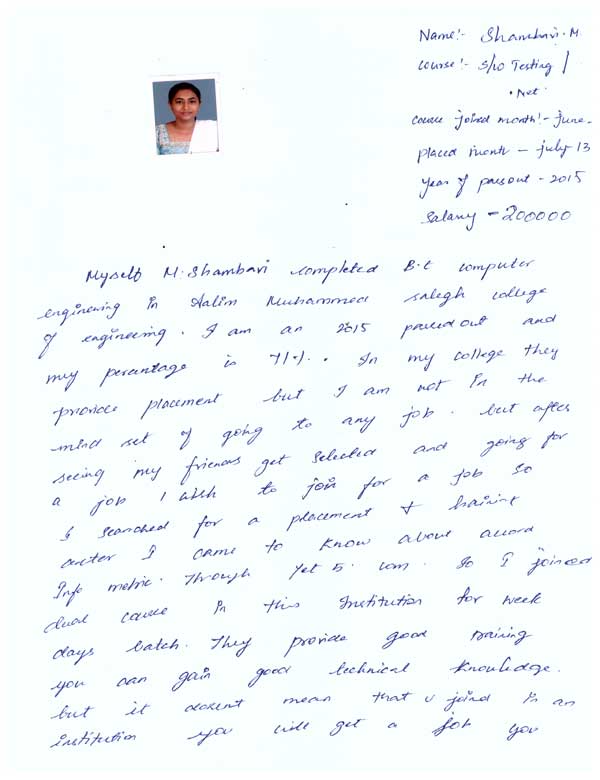 Name:- Shambavi.M
Course:- S/w Testing /
.Net
Course joined month:- June.
placed month - July 13
Year of passout - 2015
Salary - 200000
Myself M.Shambavi completed B.E computer
engineering in Aalim Muhammed salegh college
of engineering. I am an 2015 passed out and
my percentage is 71%. In my college they
provide placement but I am not in the
mind set of going to any job. but after
seeing my friends get selected and going for
a job I wish to join for a job so
I searched for a placement & training
center I came to know about accord
Info metric. Through Yet5.com. So I joined
dual course in this Institution for week
days batch. They provide good training
you can gain good technical knowledge.
but it doesent mean that u joined in an
institution you will get a job you